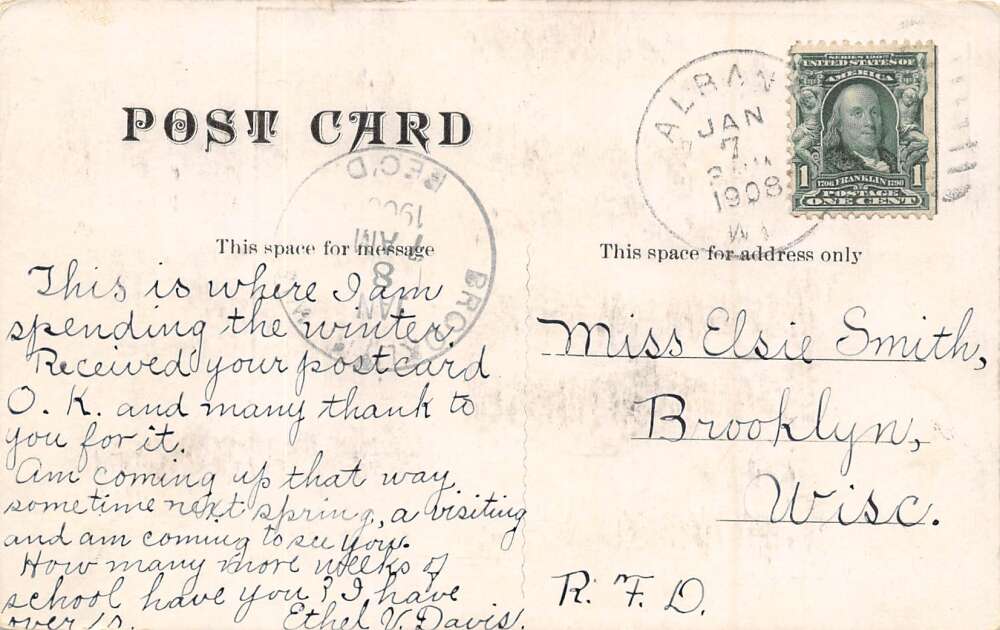 POST CARD
ALBAN
JAN
7
1908
WI
SERIES 1902
UNITED STATES OF
AMERICA
1 1706 FRANKLIN 1790 1
POSTAGE
ONE CENT
REC'D
AM
8
JAN
This space for message
This is where I am
spending the winter.
Received your postcard
O. K. and many thank to
you for it.
Am coming up that way
sometime next spring, a visiting
and am coming to see you.
How many more weeks of
school have you? I have
over
Ethel V. Davis.
This space for address only
Miss Elsie Smith,
Brooklyn,
Wisc.
R. F. D.